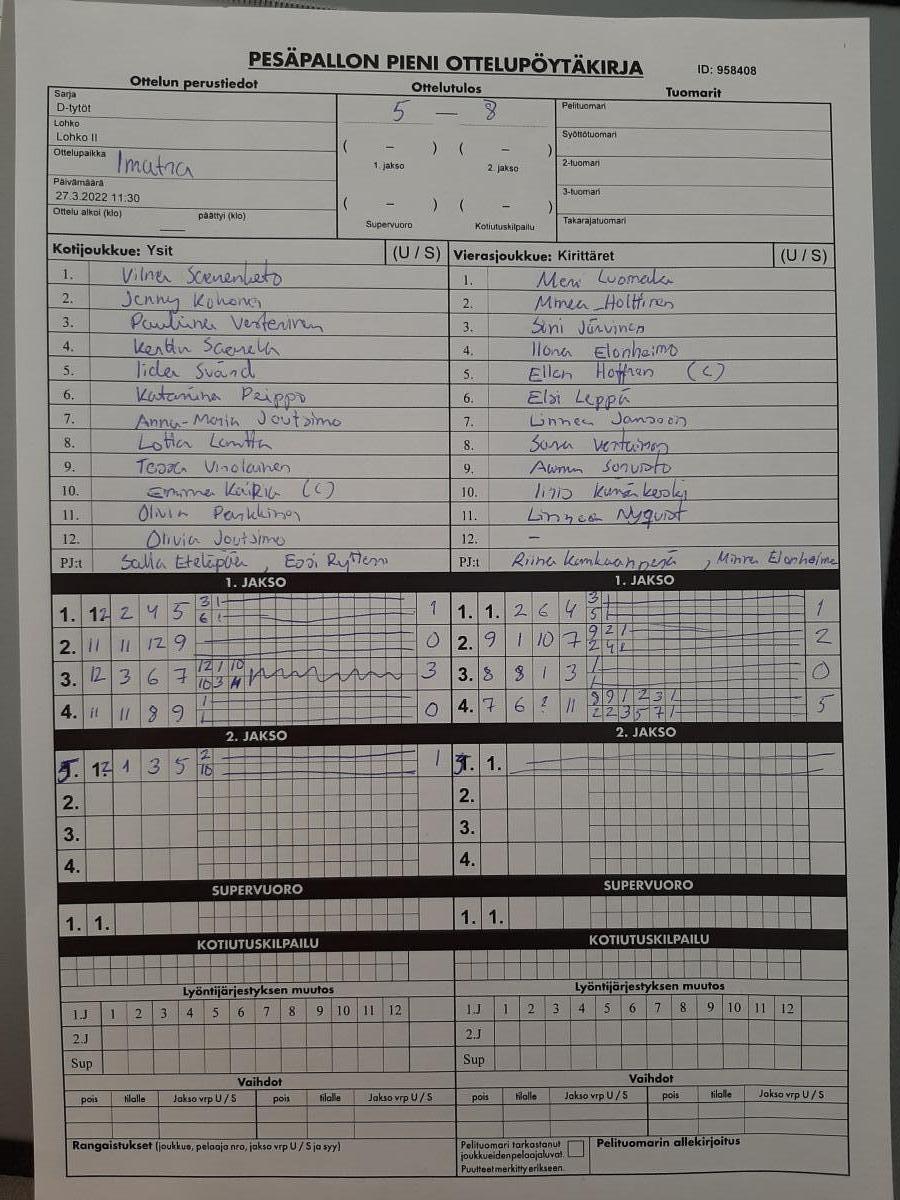 PESÄPALLON PIENI OTTELUPÖYTÄKIRJA
ID: 958408
Ottelun perustiedot
Ottelutulos
Tuomarit
Sarja
D-tytöt
Lohko
Lohko II
Ottelupaikka Imatra
Päivämäärä
27.3.2022 11:30
Ottelu alkoi (klo) päättyi (klo)
5 — 8
( – ) ( – )
1. jakso 2. jakso
( – ) ( – )
Supervuoro Kotiutuskilpailu
Pelituomari
Syöttötuomari
2-tuomari
3-tuomari
Takarajatuomari
Kotijoukkue: Ysit (U / S)
1. Vilma
2. Jenny Kohonen
3. Pauliina Vesterinen
4. Kerttu
5. Iida Svärd
6. Katariina Peippo
7. Anna-Maria Joutsimo
8. Lotta Lantta
9. Tessa Virolainen
10. Emma (C)
11. Olivia Parkkinen
12. Olivia Joutsimo
PJ:t Salla Eteläpää, Essi
Vierasjoukkue: Kirittäret (U / S)
1. Meri Luomala
2. Minea Holttinen
3. Sini Järvinen
4. Ilona Elonheimo
5. Ellen Hoffren (C)
6. Elsi Leppä
7. Linnea Jansson
8. Sara
9. Aamu
10. Iiris
11. Linnea Nyqvist
12. –
PJ:t Riina Kamkaanpesä, Minna Elonheimo
1. JAKSO
1. 12 2 4 5 3 1 1
6 1
2. 11 11 12 9 0
3. 12 3 6 7 12 1 10 3
10 3 11
4. 11 11 8 9 0
2. JAKSO
5. 12 1 3 5 2 1
10
2.
3.
4.
SUPERVUORO
1. 1.
KOTIUTUSKILPAILU
Lyöntijärjestyksen muutos
1.J 1 2 3 4 5 6 7 8 9 10 11 12
2.J
Sup
Vaihdot
pois tilalle Jakso vrp U / S pois tilalle Jakso vrp U / S
Rangaistukset (joukkue, pelaaja nro, jakso vrp U / S ja syy)
1. JAKSO
1. 1. 2 6 4 3 1
5
2. 9 1 10 7 9 2 2
2 4
3. 8 8 1 3 0
4. 7 6 ? 11 9 9 1 2 3 5
2 2 3 5 7
2. JAKSO
5. 1.
2.
3.
4.
SUPERVUORO
1. 1.
KOTIUTUSKILPAILU
Lyöntijärjestyksen muutos
1.J 1 2 3 4 5 6 7 8 9 10 11 12
2.J
Sup
Vaihdot
pois tilalle Jakso vrp U / S pois tilalle Jakso vrp U / S
Pelituomari tarkastanut
joukkueiden pelaajaluvat.
Puutteet merkitty erikseen.
Pelituomarin allekirjoitus